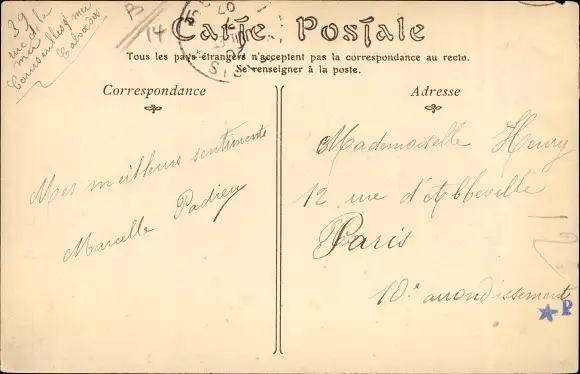 39
rue de la
mer
Courseulles s/ mer
Calvados
B
14
Carte Postale
Tous les pays étrangers n'acceptent pas la correspondance au recto.
Se renseigner à la poste.
Correspondance
Adresse
Mes meilleurs sentiments
Marcelle Padieu
Mademoiselle Henry
12 rue d'Abbeville
Paris
10.e arrondissement
12
P